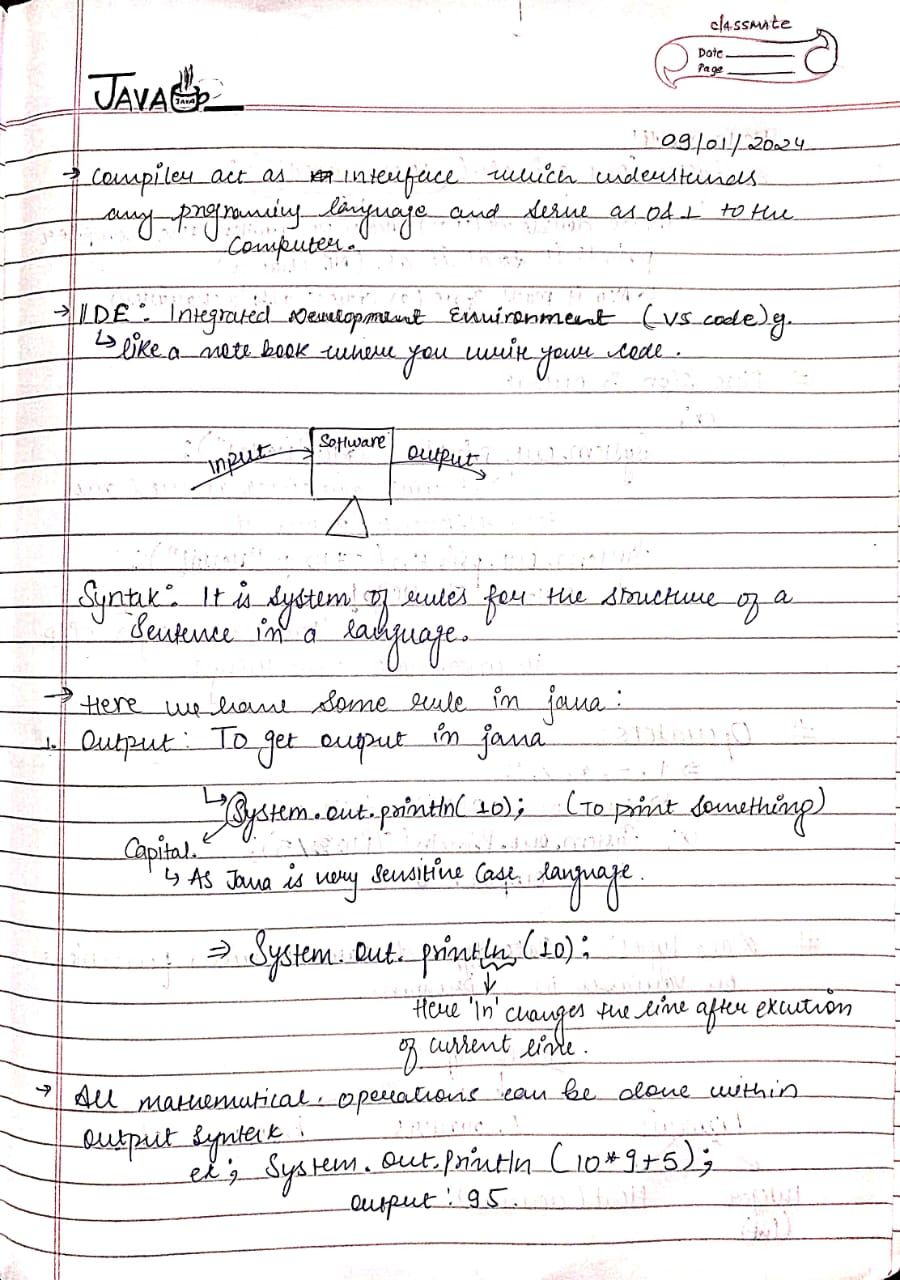 classmate
Date
Page
JAVA JAVA
09/01/2024
→ Compiler act as interface which understands
any prgraming language and serve as 0 & 1 to the
Computer.
→ IDE: Integrated Development Environment (VS code)eg.
↳ like a note book where you write your code.
Input Software Output
Syntax: It is system of rules for the structure of a
Sentence in a language.
→ Here we have some rule in java:
1. Output: To get output in java
↳ System.out.println(10); (To print something)
Capital.
↳ As Java is very sensitive Case language.
⇒ System.out.println(10);
Here 'ln' changes the line after excution
of current line.
→ All mathematical operations can be done within
output Syntax.
ex; System.out.println (10*9+5);
output: 95.